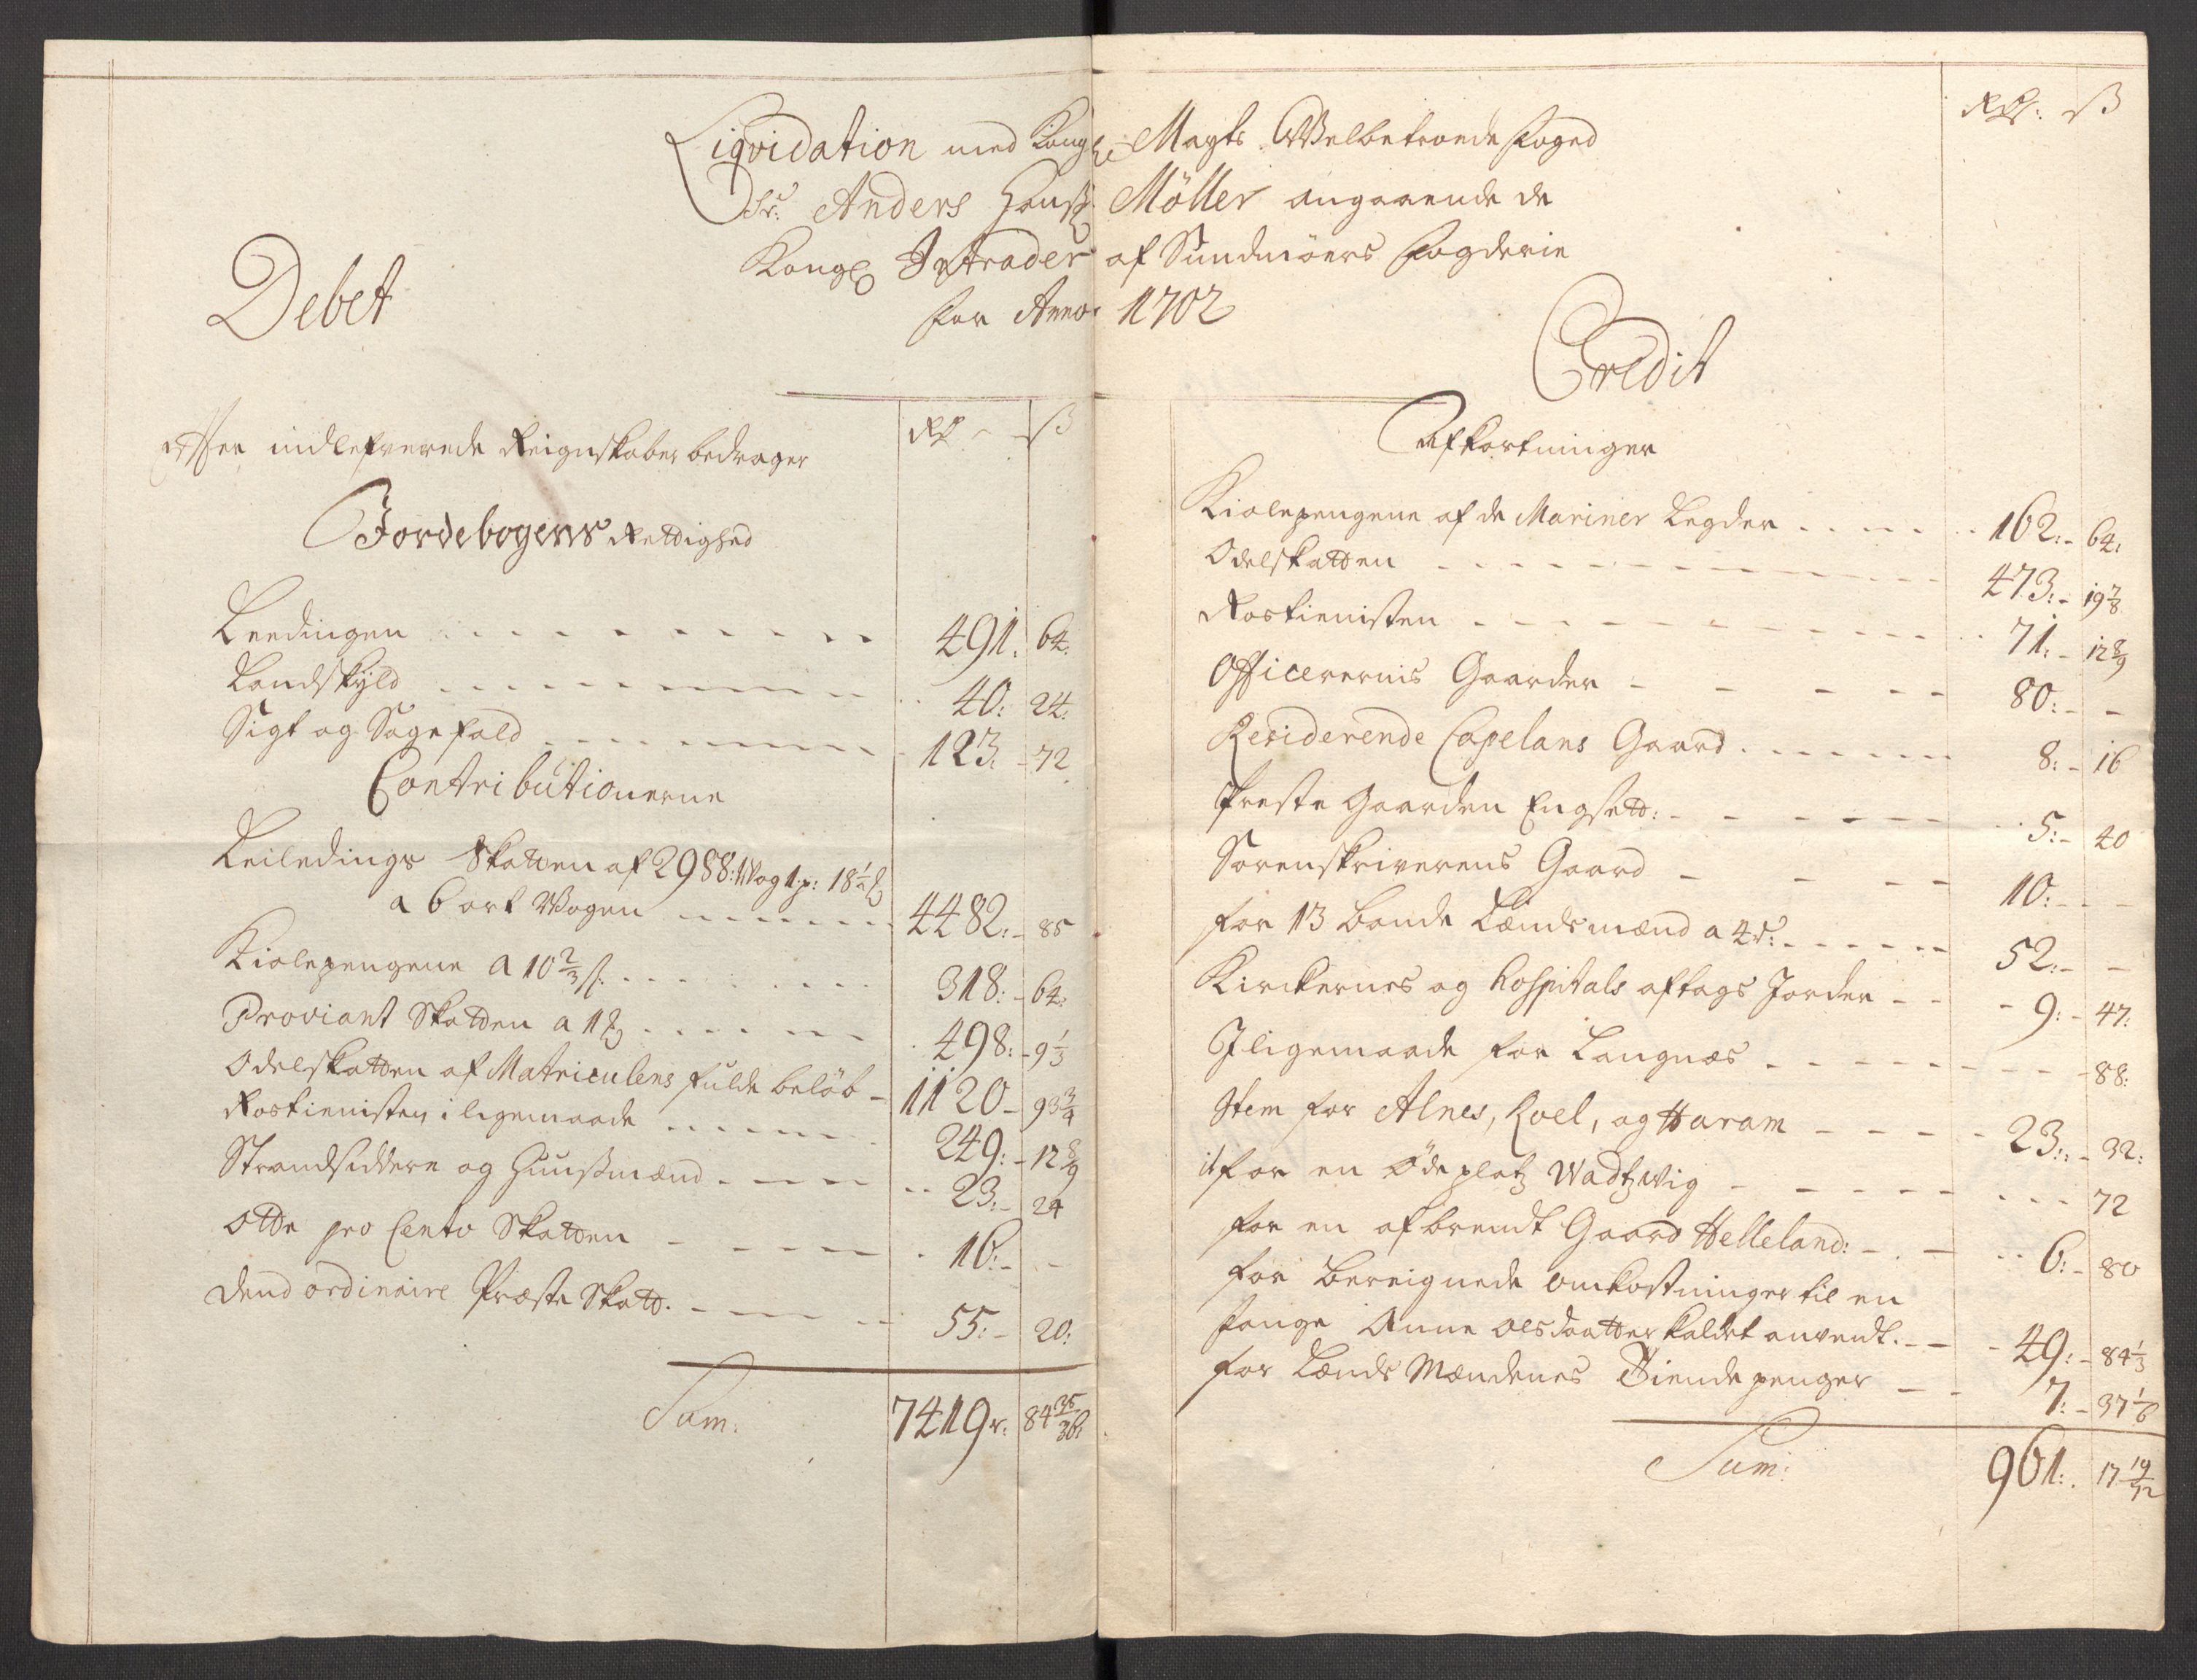 Liqvidation med Kongl: Mayts Welbetroede foged
Sr. Anders Hanß: Möller angaaende de
Kongl: Intrader af Sundmöers fogderie
for Anno 1702
Debet
Rdr ß
efter indlefverede Reignskaber bedrager
Jordebogens Rettighed
Leedingen 491: 64:
Landskyld 40: 24:
Sigt og Sagefald 123: 72
Contributionerne
Leiledings Skatten af 2988: Wog 1 p: 18 1/2 ℔
a 6 ort Wogen 4482: 85
Kiolepengene a 10 2/3 ß: 318: 64:
Proviant Skatten a 1 ℔ 498: 9 1/3
Odelskatten af Matriculens fulde beløb 1120 93 3/4
Rostienisten i ligemaade 249: 12 8/9
Strandsiddere og Huusmænd 23: 24
Otte pro Cento Skatten 16: -
dend ordinaire Præste Skatt. 55: 20:
Sum: 7419 r: 84 35/36:
Rdr: ß
Credit
Afkortninger
Kiolepengene af de Mariner Legder 162: 64:
Odelskatten 473: 19 7/8
Rostienisten 71: 12 8/9
Officerernis Gaarder 80: -
Residerende Capelans Gaard 8: 16
Preste Gaarden Engsett: 5: 40
Sorenskriverens Gaard 10: -
for 13 bonde Lændsmænd a 4 r: 52: -
Kirckernes og Hospitals aftags Jorder 9: 47:
Iligemaade for Langnæs - 88:
Item for Alnes, Roel, og Haram 23: 32:
it for en Öde platz Wadtzwig - 72
for en afbrendt Gaard Helleland: 6: 80
for bereignede omkostninger til en
fange Anne Olsdaatter kaldet anvendt. 49: 84 1/3
for Lænds Mændenes Tiende penger 7: 37 1/6
Sum: 961: 17 19/72